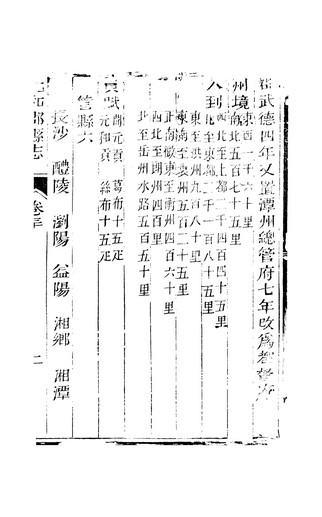 武德四年又置潭州總管府七年改爲都督府
州境東西一千六十里
南北五百七十五里
八到西北至上都二千四百四十五里
西北至東都二千一百八十五里
東至洪州九百八十里
東南至袁州五百二十五里
正南微東至衡州四百六十里
西北至朗州四百里
北至岳州水路五百五十里
貢賦開元貢 葛布十五疋
元和貢 絲布十五疋
管縣六
長沙 醴陵 瀏陽 益陽 湘鄉 湘潭
元和郡縣志 卷三 二